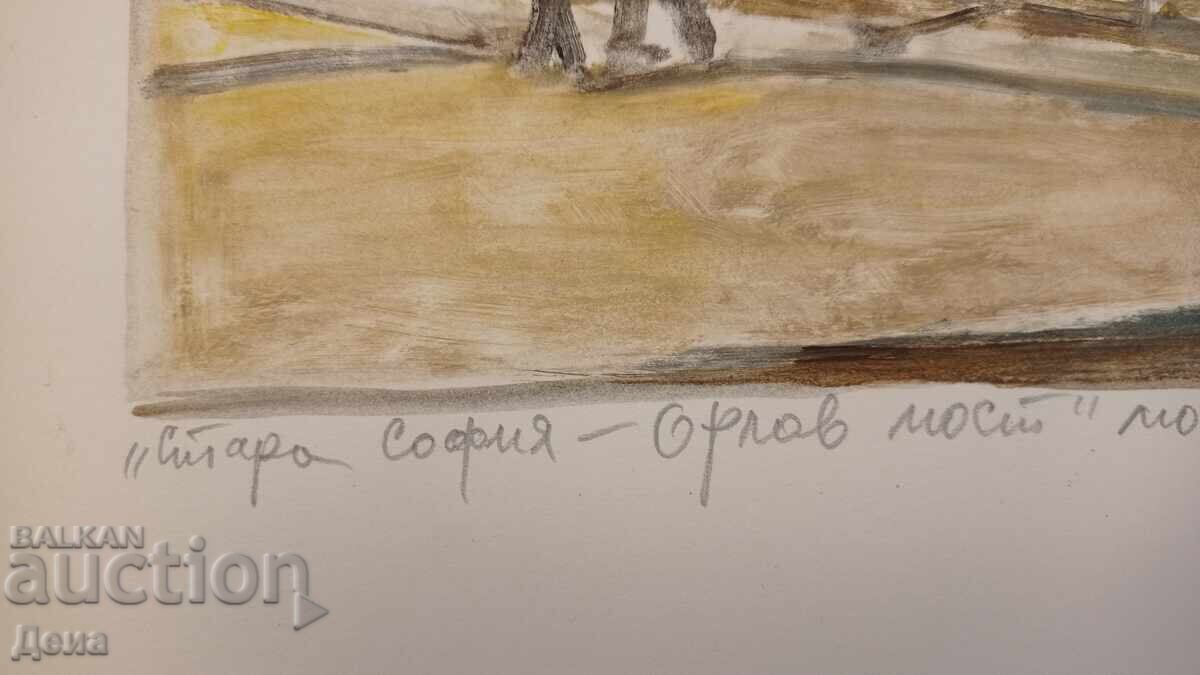 „Стара София – Орлов мост" мо
BALKAN
auction
Деиа